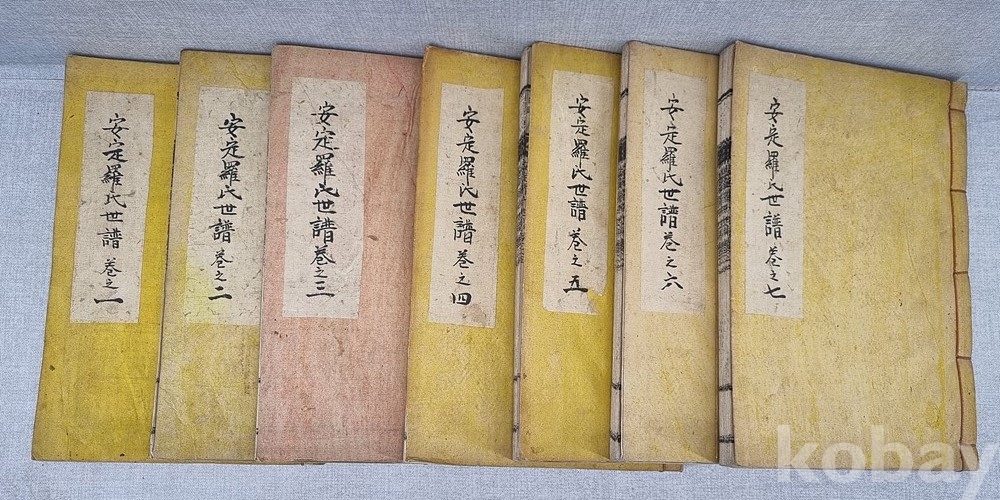 安定羅氏世譜 卷之一
安定羅氏世譜 卷之二
安定羅氏世譜 卷之三
安定羅氏世譜 卷之四
安定羅氏世譜 卷之五
安定羅氏世譜 卷之六
安定羅氏世譜 卷之七
kobay